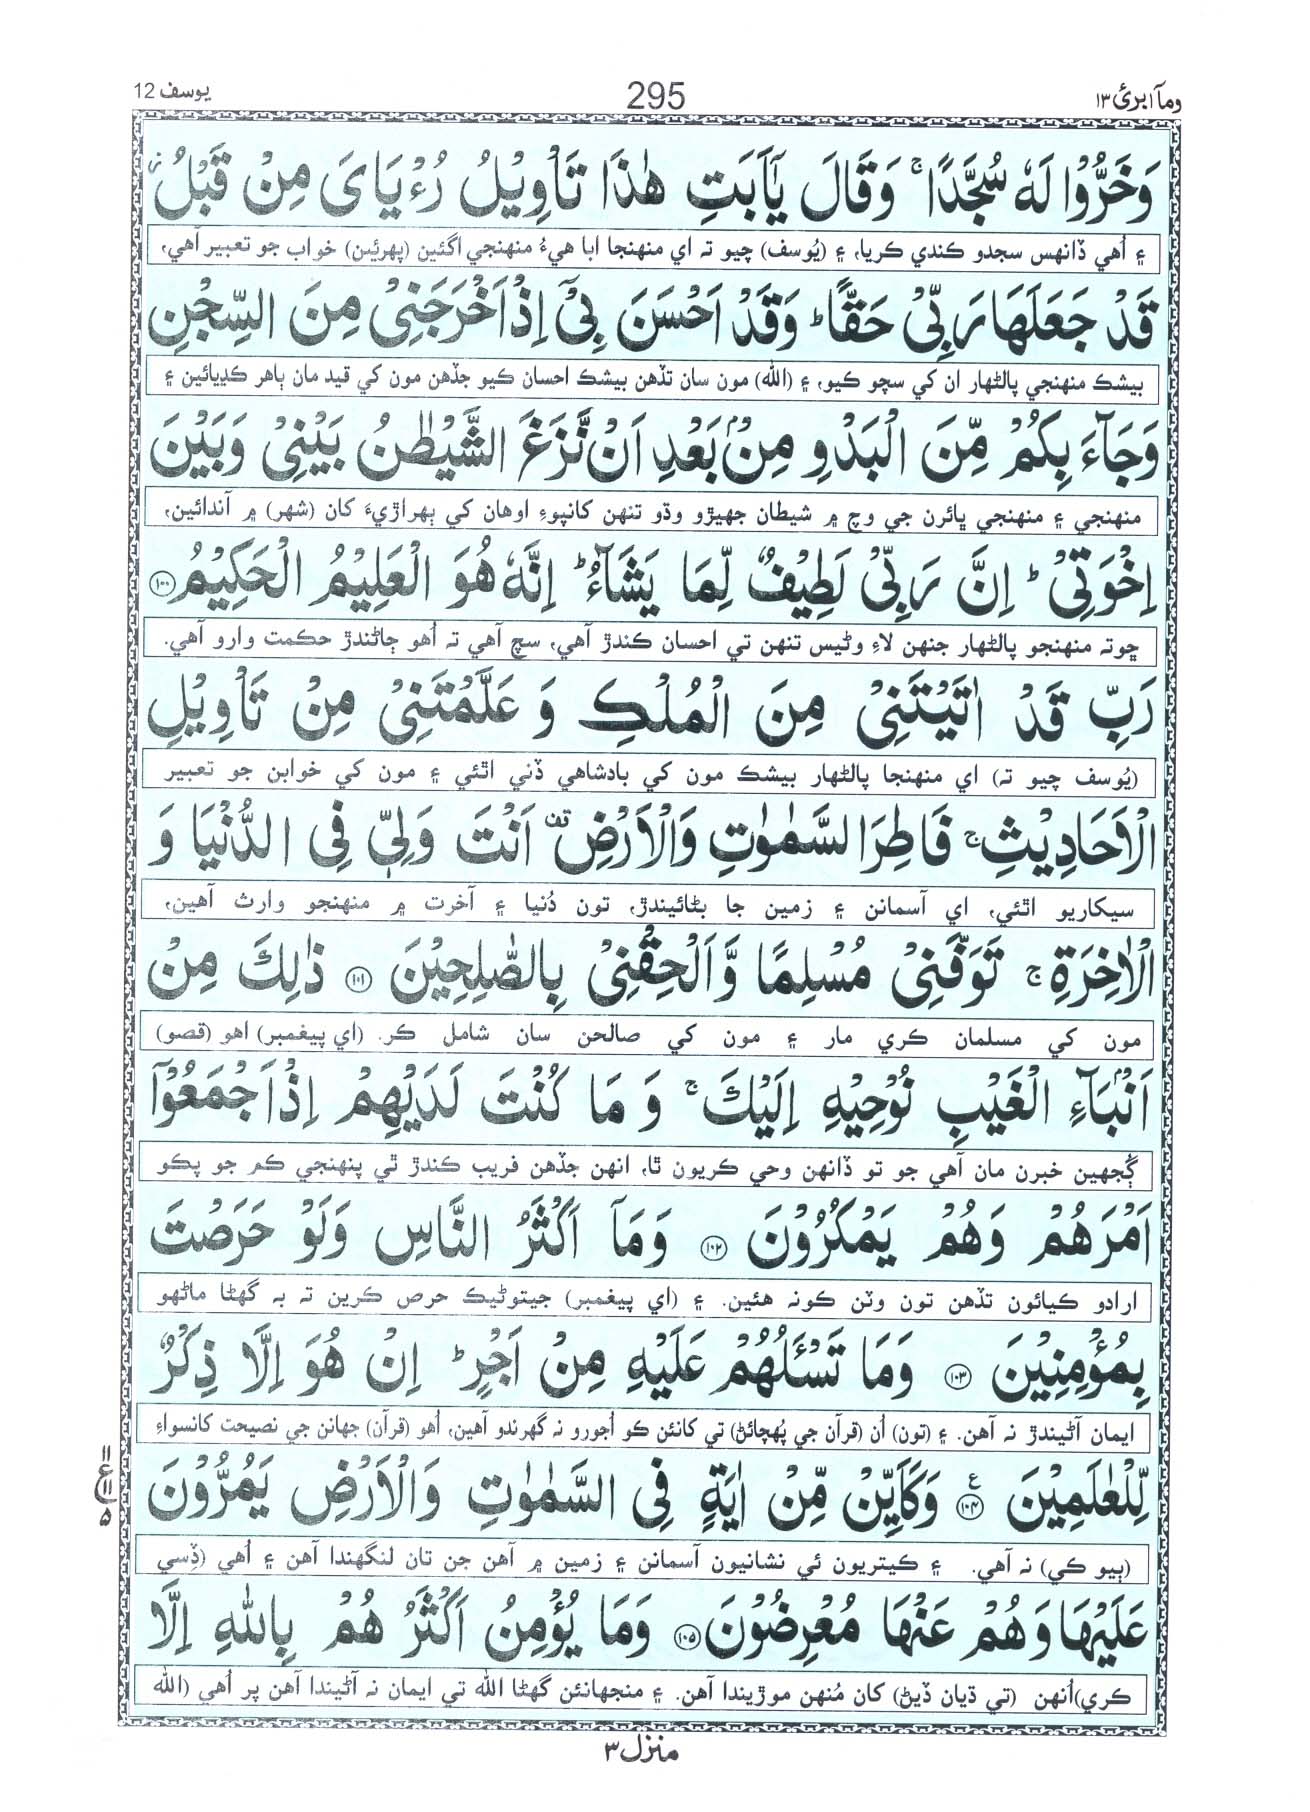 ومآ ابرئ ١٣ 295 يوسف 12
وَخَرُّوْا لَهٗ سُجَّدًا ۚ وَقَالَ يٰٓاَبَتِ هٰذَا تَاْوِيْلُ رُءْيَايَ مِنْ قَبْلُ ؗ
۽ اُهي ڏانهس سجدو ڪندي ڪريا، ۽ (يُوسف) چيو ته اي منهنجا ابا هيءُ منهنجي اڳئين (پهرئين) خواب جو تعبير آهي،
قَدْ جَعَلَهَا رَبِّيْ حَقًّا ؕ وَقَدْ اَحْسَنَ بِيْٓ اِذْ اَخْرَجَنِيْ مِنَ السِّجْنِ
بيشڪ منهنجي پالڻهار ان کي سچو ڪيو، ۽ (الله) مون سان تڏهن بيشڪ احسان ڪيو جڏهن مون کي قيد مان ٻاهر ڪڍيائين ۽
وَجَآءَ بِكُمْ مِّنَ الْبَدْوِ مِنْۢ بَعْدِ اَنْ نَّزَغَ الشَّيْطٰنُ بَيْنِيْ وَبَيْنَ
منهنجي ۽ منهنجي ڀائرن جي وچ ۾ شيطان جهيڙو وڌو تنهن کانپوءِ اوهان کي ٻهراڙيءَ کان (شهر) ۾ آندائين،
اِخْوَتِيْ ؕ اِنَّ رَبِّيْ لَطِيْفٌ لِّمَا يَشَآءُ ؕ اِنَّهٗ هُوَ الْعَلِيْمُ الْحَكِيْمُ ١٠٠
ڇوته منهنجو پالڻهار جنهن لاءِ وڻيس تنهن تي احسان ڪندڙ آهي، سچ آهي ته اُهو ڄاڻندڙ حڪمت وارو آهي.
رَبِّ قَدْ اٰتَيْتَنِيْ مِنَ الْمُلْكِ وَعَلَّمْتَنِيْ مِنْ تَاْوِيْلِ
(يُوسف چيو ته) اي منهنجا پالڻهار بيشڪ مون کي بادشاهي ڏني اٿئي ۽ مون کي خوابن جو تعبير
الْاَحَادِيْثِ ۚ فَاطِرَ السَّمٰوٰتِ وَالْاَرْضِ ۫ اَنْتَ وَلِيّٖ فِي الدُّنْيَا وَ
سيکاريو اٿئي، اي آسمانن ۽ زمين جا بڻائيندڙ، تون دُنيا ۽ آخرت ۾ منهنجو وارث آهين،
الْاٰخِرَةِ ۚ تَوَفَّنِيْ مُسْلِمًا وَّاَلْحِقْنِيْ بِالصّٰلِحِيْنَ ١٠١ ذٰلِكَ مِنْ
مون کي مسلمان ڪري مار ۽ مون کي صالحن سان شامل ڪر. (اي پيغمبر) اهو (قصو)
اَنْۢبَآءِ الْغَيْبِ نُوْحِيْهِ اِلَيْكَ ۚ وَمَا كُنْتَ لَدَيْهِمْ اِذْ اَجْمَعُوْٓا
ڳُجهين خبرن مان آهي جو تو ڏانهن وحي ڪريون ٿا، انهن جڏهن فريب ڪندڙ ٿي پنهنجي ڪم جو پڪو
اَمْرَهُمْ وَهُمْ يَمْكُرُوْنَ ١٠٢ وَمَآ اَكْثَرُ النَّاسِ وَلَوْ حَرَصْتَ
ارادو ڪيائون تڏهن تون وٽن ڪونه هئين. ۽ (اي پيغمبر) جيتوڻيڪ حرص ڪرين ته به گهڻا ماڻهو
بِمُؤْمِنِيْنَ ١٠٣ وَمَا تَسْـَٔلُهُمْ عَلَيْهِ مِنْ اَجْرٍ ؕ اِنْ هُوَ اِلَّا ذِكْرٌ
ايمان آڻيندڙ نه آهن. ۽ (تون) اُن (قرآن جي پُهچائڻ) تي کانئن ڪو اُجورو نه گهرندو آهين، اُهو (قرآن) جهانن جي نصيحت کانسواءِ
لِّلْعٰلَمِيْنَ ١٠٤ ع وَكَاَيِّنْ مِّنْ اٰيَةٍ فِي السَّمٰوٰتِ وَالْاَرْضِ يَمُرُّوْنَ
١١ ع ١١ ٥
(ٻيو ڪي) نه آهي. ۽ ڪيتريون ئي نشانيون آسمانن ۽ زمين ۾ آهن جن تان لنگهندا آهن ۽ اُهي (ڏِسي
عَلَيْهَا وَهُمْ عَنْهَا مُعْرِضُوْنَ ١٠٥ وَمَا يُؤْمِنُ اَكْثَرُهُمْ بِاللّٰهِ اِلَّا
ڪري)اُنهن (تي ڌيان ڏيڻ) کان مُنهن موڙيندا آهن. ۽ منجهانئن گهڻا الله تي ايمان نه آڻيندا آهن پر اُهي (الله
منزل ٣